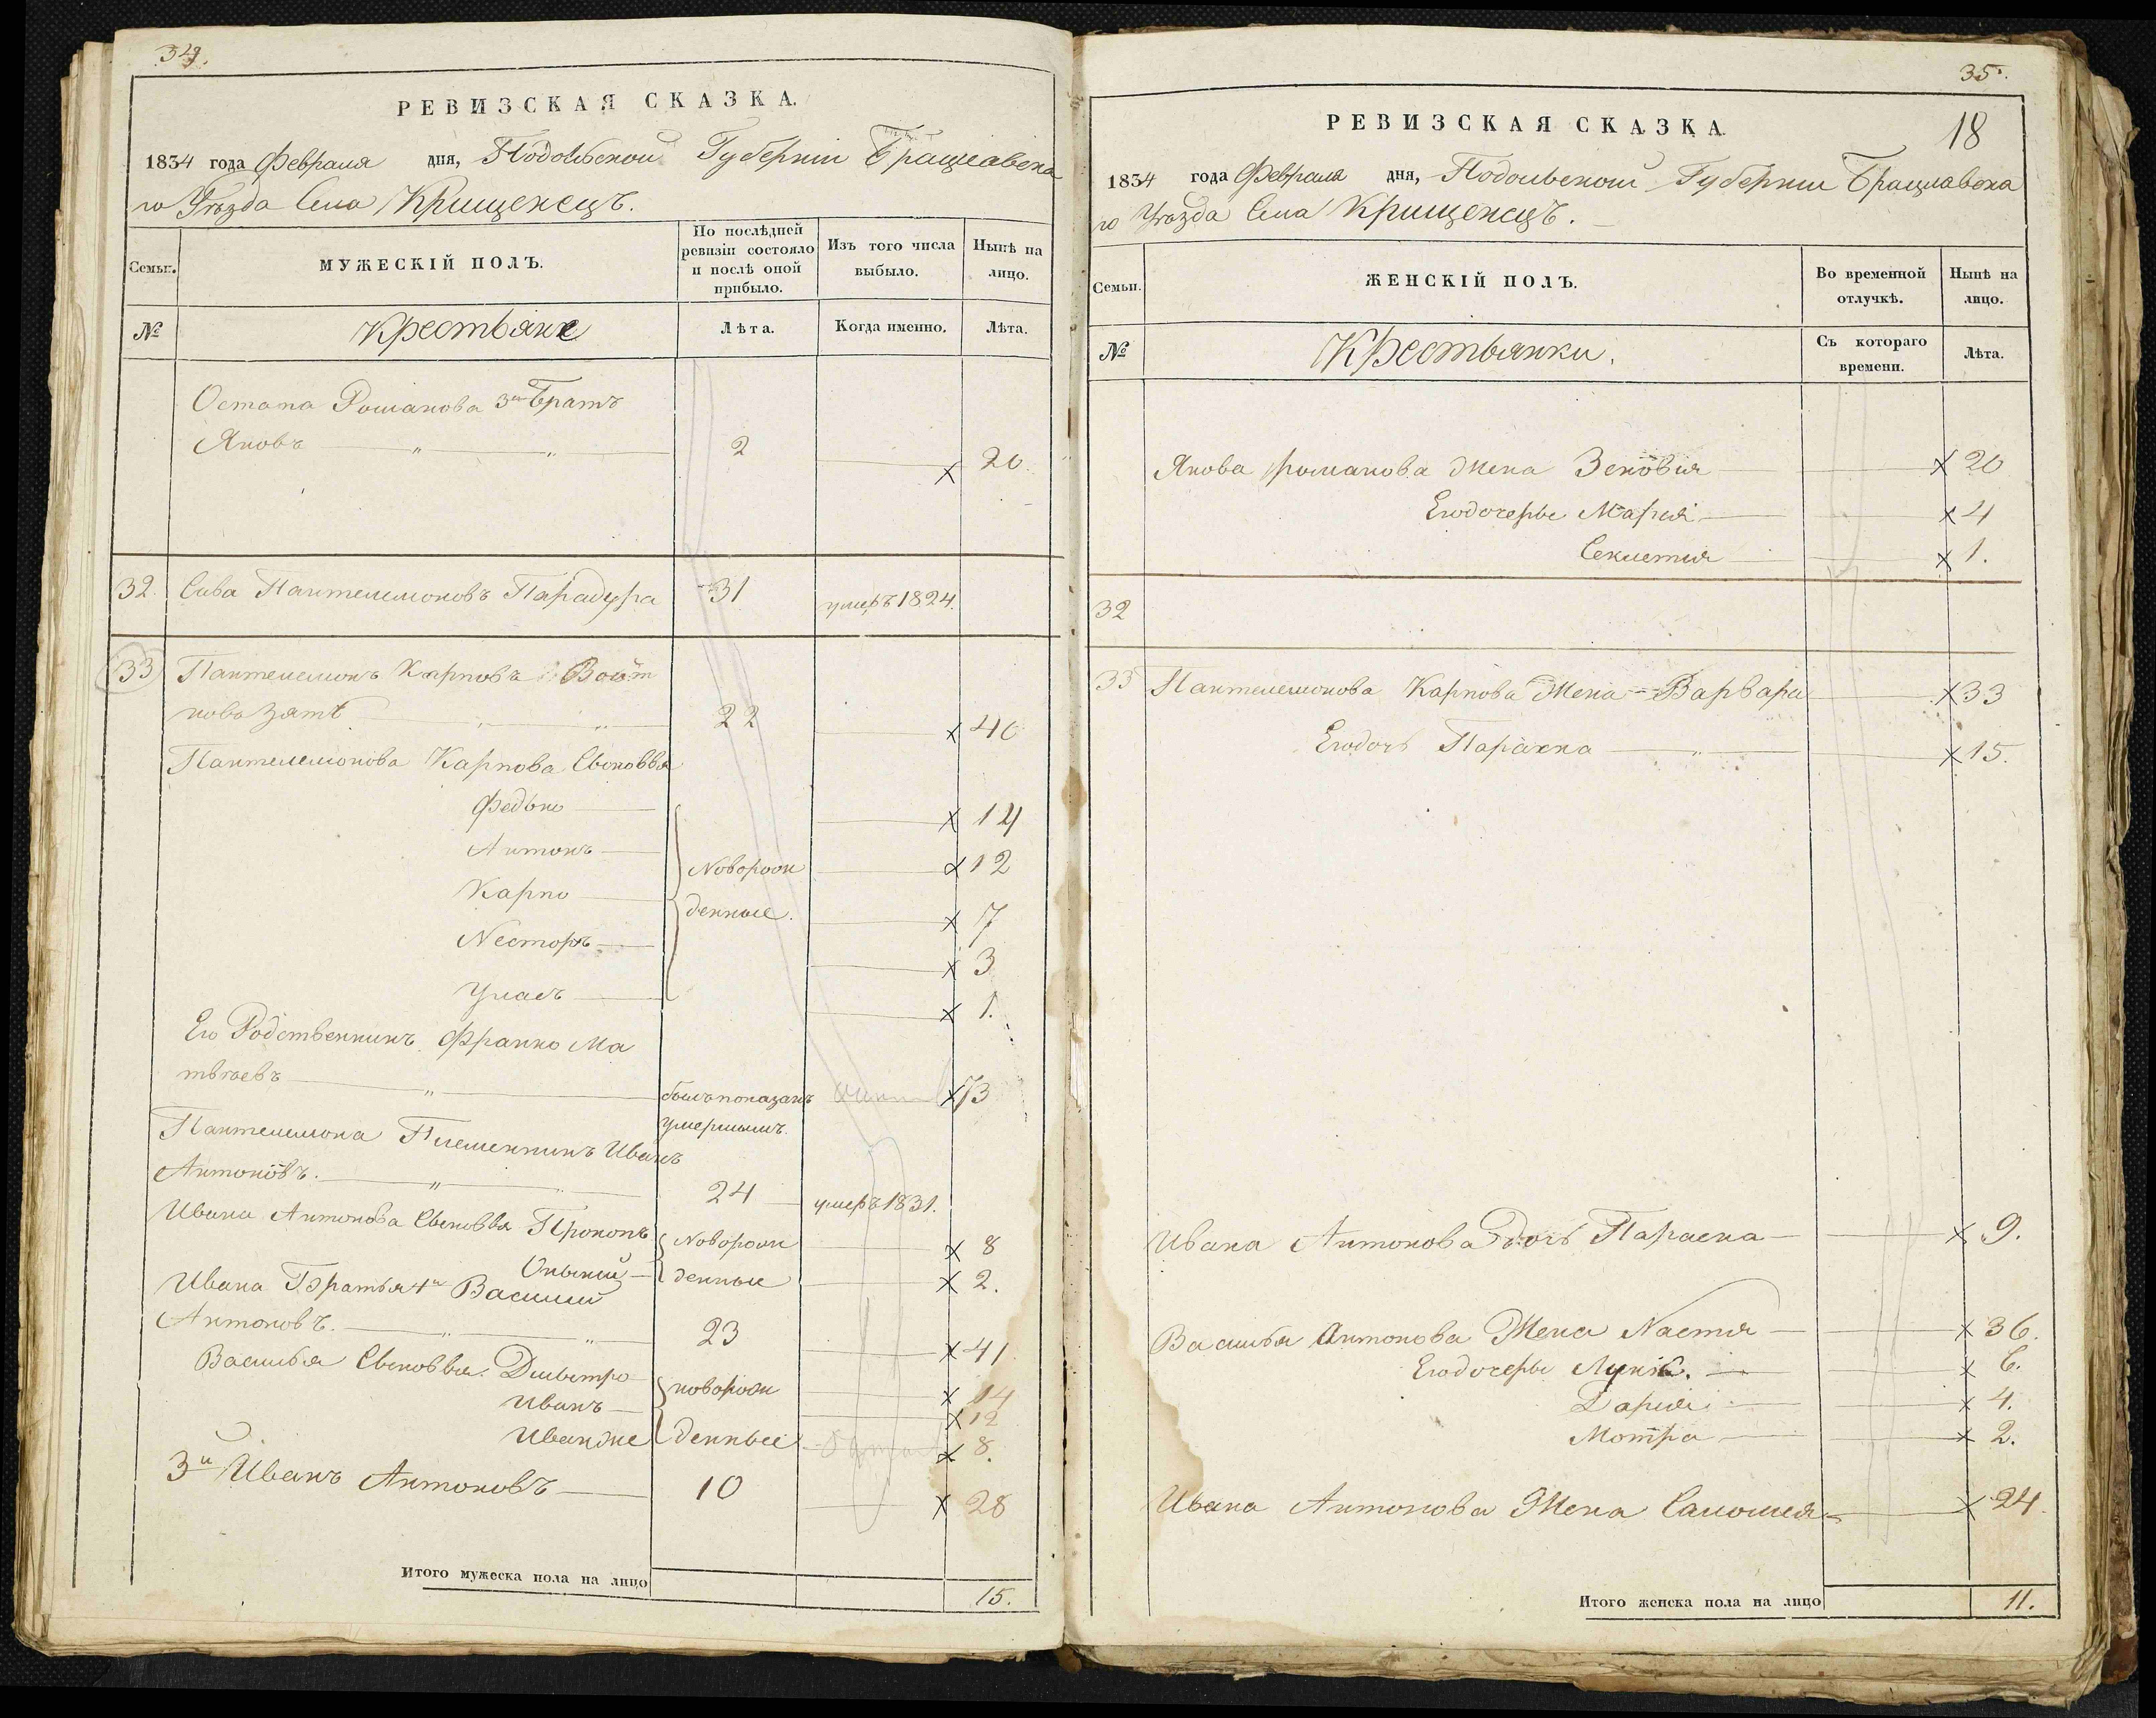 34.
РЕВИЗСКАЯ СКАЗКА.
1834 года Февраля дня, Подольской Губерніи Брацлавска
го Уѣзда Села Крищенецъ.
Семьи.
МУЖЕСКІЙ ПОЛЪ.
По послѣдней ревизіи состояло и послѣ оной прибыло.
Изъ того числа выбыло.
Нынѣ на лицо.
№
Крестьяне
Лѣта.
Когда именно.
Лѣта.
Остапа Романова 3й Братъ
Яковъ — „ — „ — 2 — х 20.
32. Сава Пантелемоновъ Парадура 31 умеръ 1824.
33 Пантелемонъ Карповъ Войт
нова Зять — „ — „ — 22 — х 40
Пантелемонова Карпова Сыновья
Федько — х 14
Антонъ — х 12
Новорож
Карпо — х 7
денные.
Несторъ — х 3
Уласъ — х 1.
Его Родственникъ Франко Ма
твѣевъ — „ — былъ показанъ х 73
умершимъ.
Пантелемона Племенникъ Иванъ
Антоновъ. — „ — „ — 24 — умеръ 1831.
Ивана Антонова Сыновья Прокопъ — Новорож — х 8
денные — х 2.
Ивана Братья 1й Василий
Антоновъ. — „ — „ — 23 — х 41
Василья Сыновья Дмытро — новорож — х 14
Иванъ — х 12
Иванже денные х 8.
3й Иванъ Антоновъ — 10 — х 28
Итого мужеска пола на лицо 15.
35.
18
РЕВИЗСКАЯ СКАЗКА.
1834 года Февраля дня, Подольской Губерніи Брацлавска
го Уѣзда Села Крищенецъ.
Семьи.
ЖЕНСКІЙ ПОЛЪ.
Во временной отлучкѣ.
Нынѣ на лицо.
№
Крестьянки.
Съ котораго времени.
Лѣта.
Якова Романова Жена Зеновія — х 20
Егодочерье Марія — х 4
Секлетия — х 1.
32
33 Пантелемонова Карпова Жена Варвара — х 33
Егодочь Параска — „ — х 15.
Ивана Антонова Дочь Параска — х 9.
Василья Антонова Жена Настия — х 36.
Егодочерье Лукія. — х 6.
Дарія — х 4.
Мотра — х 2.
Ивана Антонова Жена Саломея — х 24.
Итого женска пола на лицо 11.